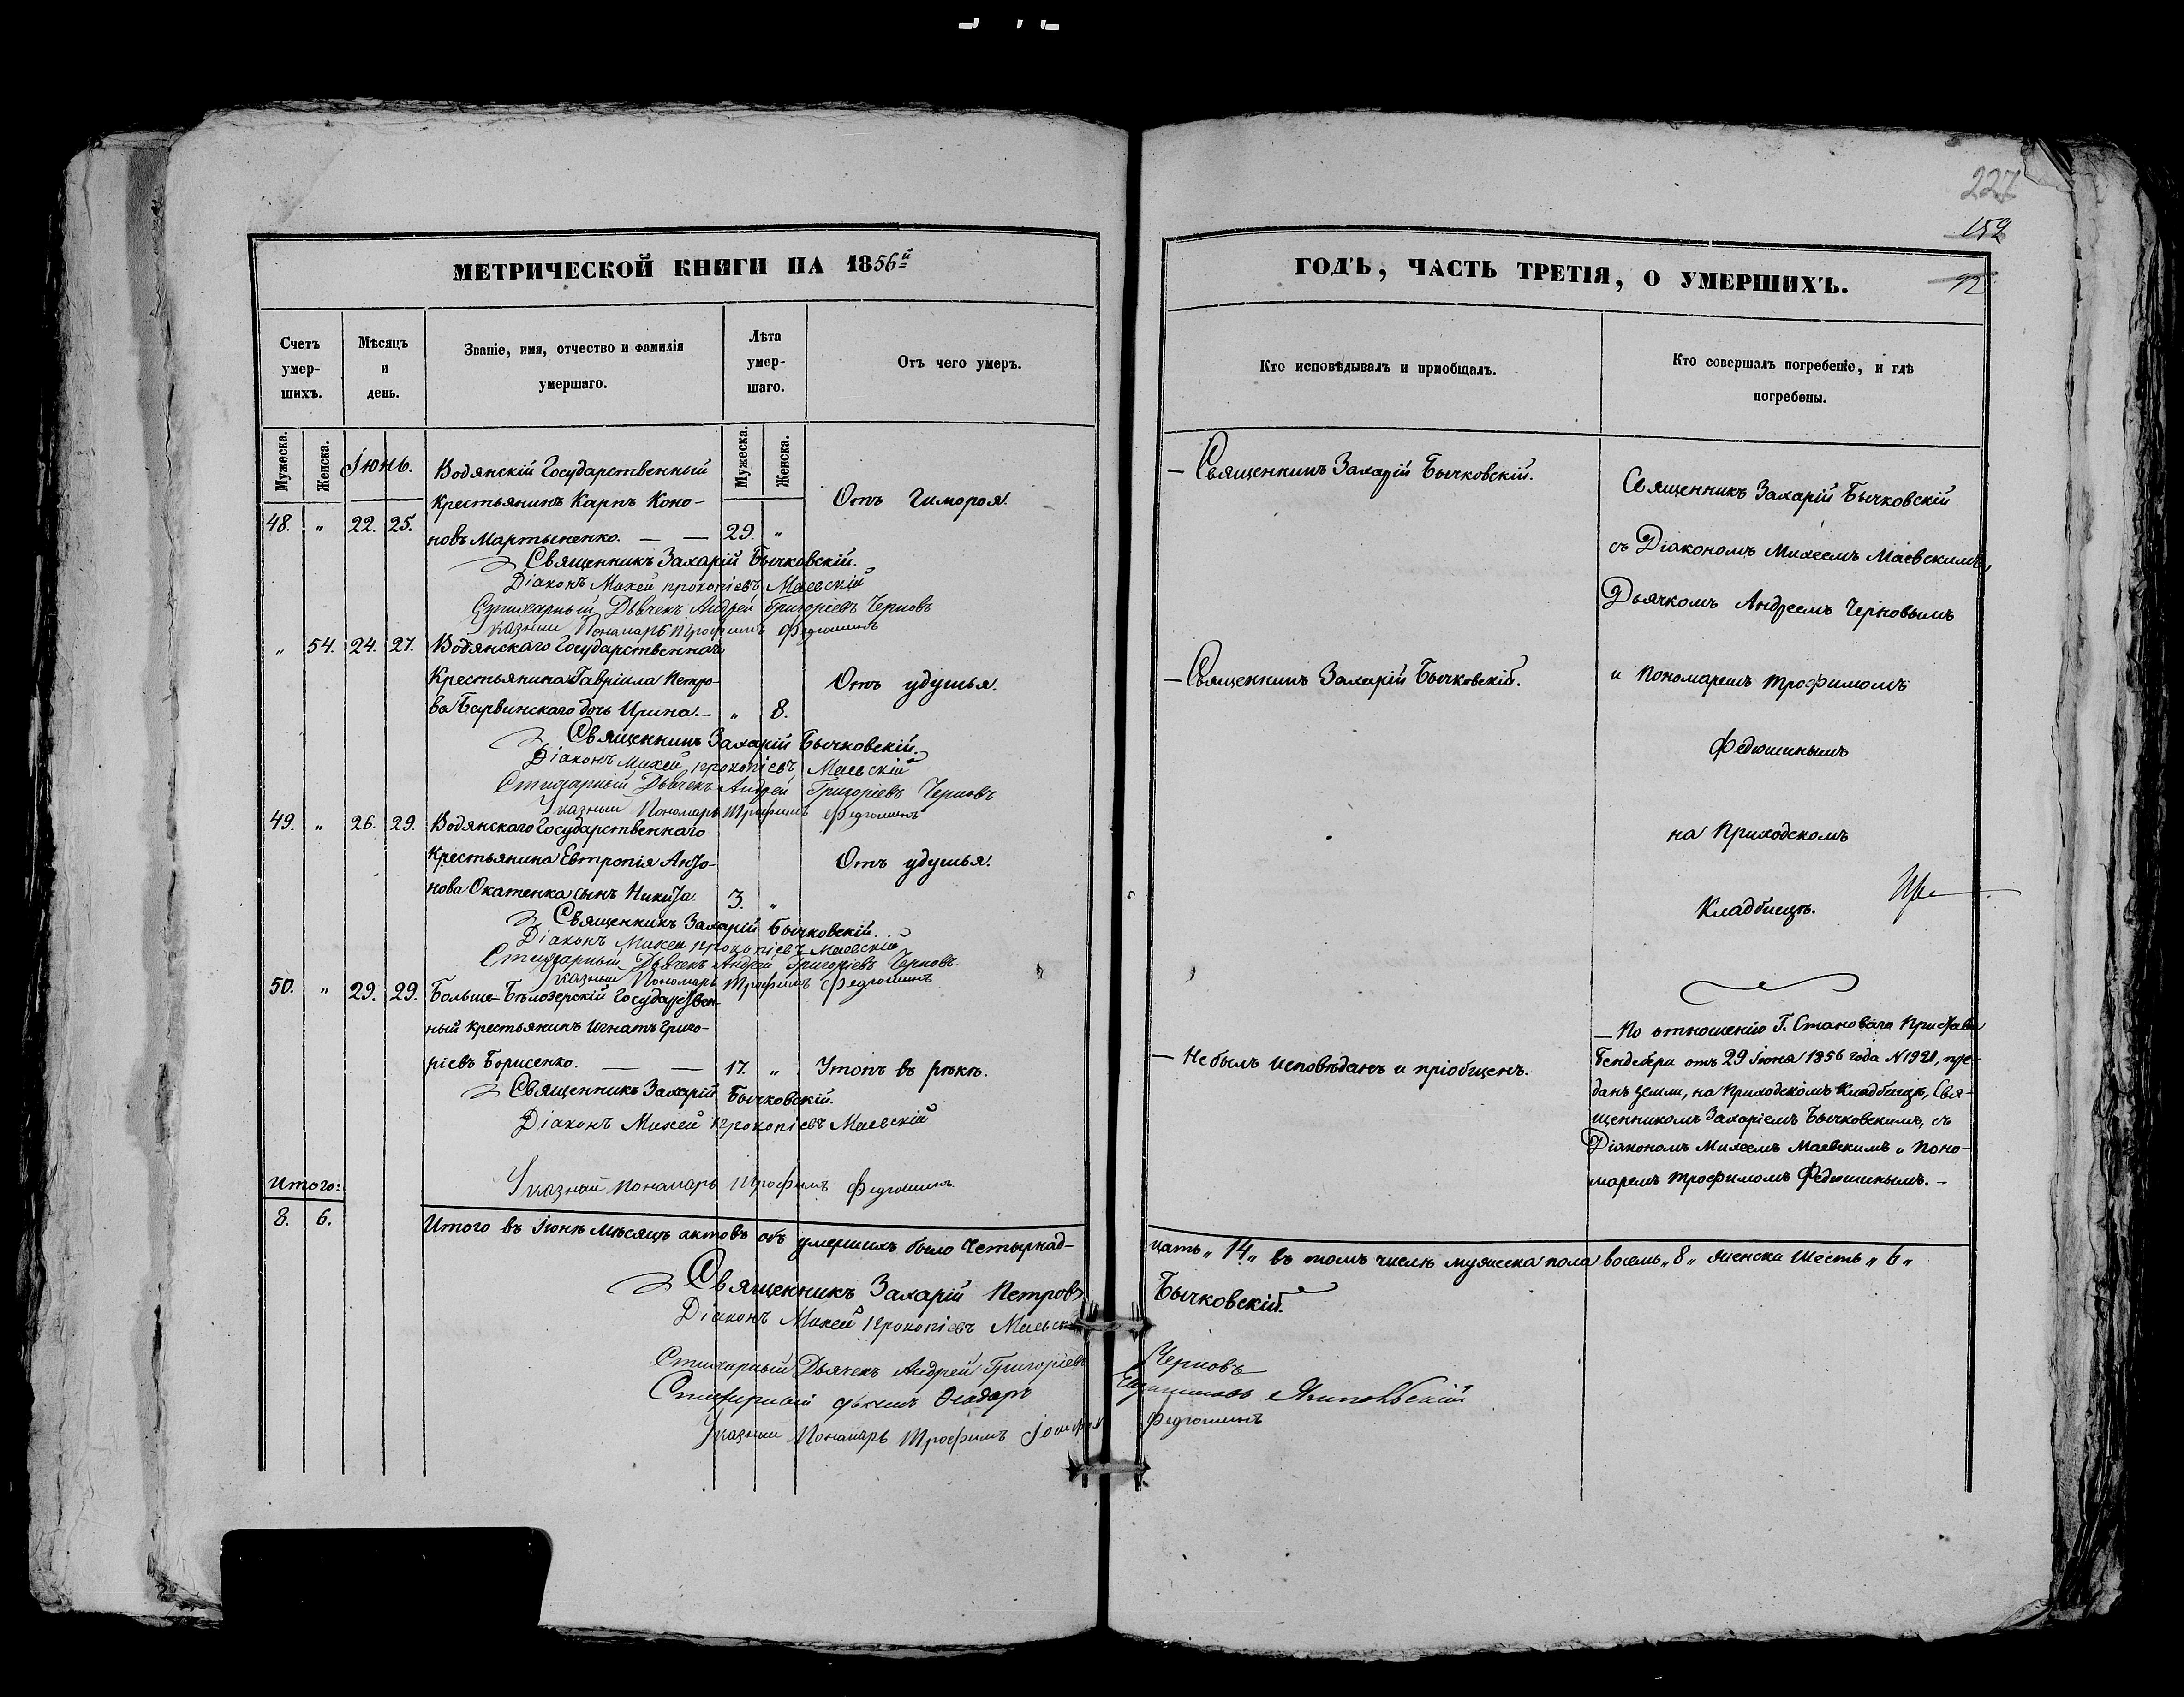 227
152
92
МЕТРИЧЕСКОЙ КНИГИ НА 1856й
ГОДЪ, ЧАСТЬ ТРЕТІЯ, О УМЕРШИХЪ.
Счетъ умер-шихъ.
Мѣсяцъ и день.
Званіе, имя, отчество и фамилія умершаго.
Лѣта умер-шаго.
Отъ чего умеръ.
Кто исповѣдывалъ и пріобщалъ.
Кто совершалъ погребеніе, и гдѣ погребены.
Мужеска.
Женска.
Мужеска.
Женска.
Іюнь.
Водянскій Государственный
Крестьянинъ Карпъ Коно-
48. " 22. 25. новъ Мартыненко. — — 29. "
Отъ Гимороя.
Священникъ Захарій Бычковскій.
Діаконъ Михей Прокопіевъ Маевскій
Стихарный Дьячекъ Андрей Григоріевъ Черновъ
Указный Пономарь Трофимъ Федюшинъ
" 54. 24. 27. Водянскаго Государственнаго
Крестьянина Гавріила Петро-
ва Барвинскаго дочь Ирина. — " 8.
Отъ удушья.
Священникъ Захарій Бычковскій.
Діаконъ Михей Прокопіевъ Маевскій
Стихарный Дьячекъ Андрей Григоріевъ Черновъ
Указный Пономарь Трофимъ Федюшинъ
49. " 26. 29. Водянскаго Государственнаго
Крестьянина Евтропія Анто-
нова Окатенка сынъ Никита. 3. "
Отъ удушья.
Священникъ Захарій Бычковскій.
Діаконъ Михей Прокопіевъ Маевскій
Стихарный Дьячекъ Андрей Григоріевъ Черновъ.
Указный Пономарь Трофимъ Федюшинъ
50. " 29. 29. Больше-Бѣлозерскій Государствен-
ный крестьянинъ Игнатъ Григо-
ріевъ Борисенко. — — 17. "
Утопъ въ рѣкѣ.
Священникъ Захарій Бычковскій.
Діаконъ Михей Прокопіевъ Маевскій
Указный Пономарь Трофимъ Федюшинъ.
— Священникъ Захарій Бычковскій.
— Священникъ Захарій Бычковскій.
— Не былъ исповѣданъ и пріобщенъ.
Священникъ Захарій Бычковскій
съ Діакономъ Михеемъ Маевскимъ,
Дьячкомъ Андреемъ Черновымъ
и Пономаремъ Трофимомъ
Федюшинымъ
на Приходскомъ
Кладбищѣ.
— По отношенію Г. Становаго Пристава
отъ 29 Іюня 1856 года N 1921, пре-
данъ земли, на Приходскомъ Кладбищѣ, Свя-
щенникомъ Захаріемъ Бычковскимъ, съ
Діакономъ Михеемъ Маевскимъ и Поно-
маремъ Трофимомъ Федюшинымъ. —
Итого:
8. 6.
Итого въ Іюнѣ мѣсяцѣ актовъ объ умершихъ было Четырнад-
цать „14„ въ томъ числѣ мужеска пола восемь „8„ женска шесть „6„
Священникъ Захарій Петровъ Бычковскій.
Діаконъ Михей Прокопіевъ
Стихарный Дьячекъ Андрей Григоріевъ Черновъ
Стихарный Ѳеодоръ
Указный Пономарь Трофимъ Федюшинъ